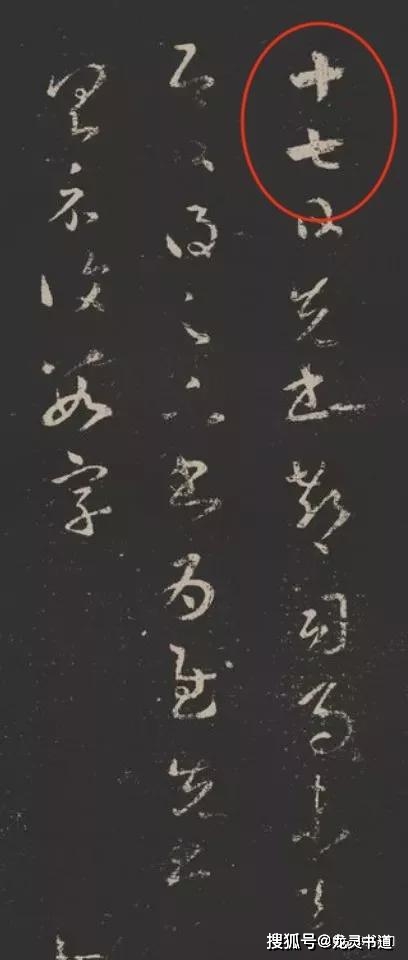 十七日先書郗司馬未去
即日得足下書為慰先書
以具示復數字
搜狐号@龙灵书道